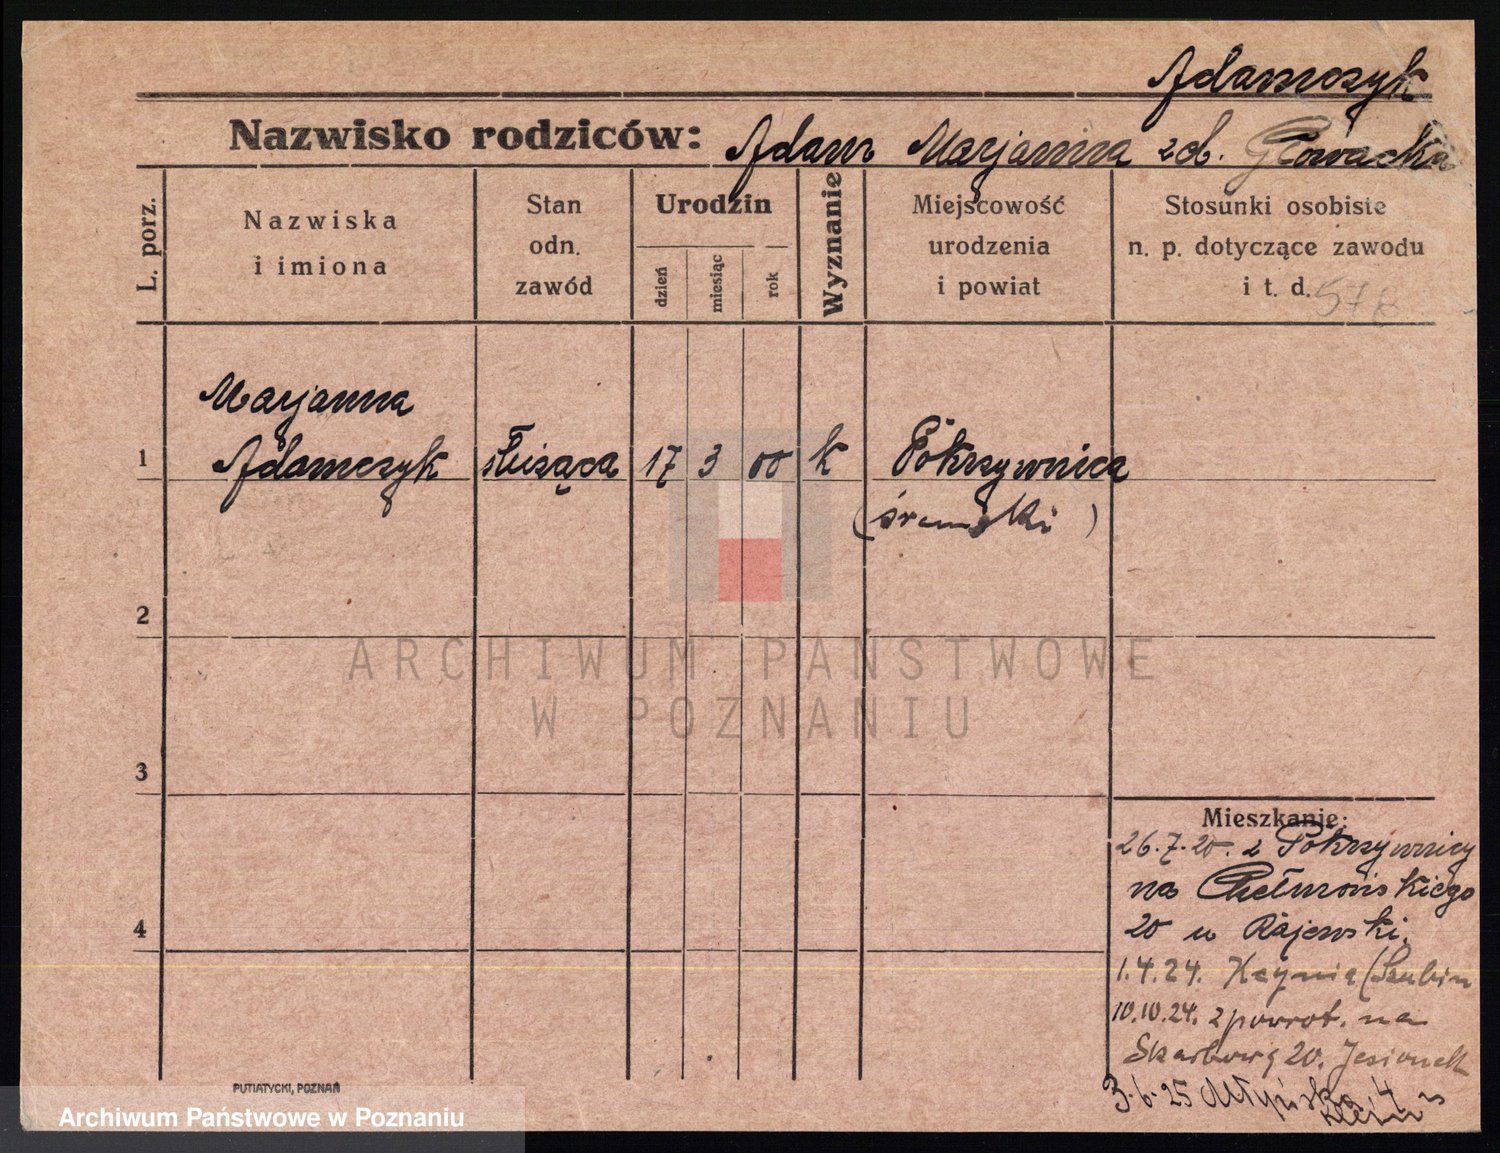 Adamczyk
Nazwisko rodziców: Adam Marjanna zd. Głowacka
L. porz.
Nazwiska
i imiona
Stan
odn.
zawód
Urodzin
dzień
miesiąc
rok
Wyznanie
Miejscowość
urodzenia
i powiat
Stosunki osobiste
n. p. dotyczące zawodu
i t. d.
Marjanna
1 Adamczyk służąca 17 3 00 k Pokrzywnica
(śremski)
2
ARCHIWUM PAŃSTWOWE
W POZNANIU
3
4
Mieszkanie:
26.7.20. z Pokrzywnicy
na Chełmońskiego
20 u Rajewski.
1.4.24. Kcynia (Szubin
10.10.24. z powrot. na
Skarbową 20. Jesionek
3.6.25 Młyńska 4
PUTIATYCKI, POZNAŃ
Archiwum Państwowe w Poznaniu